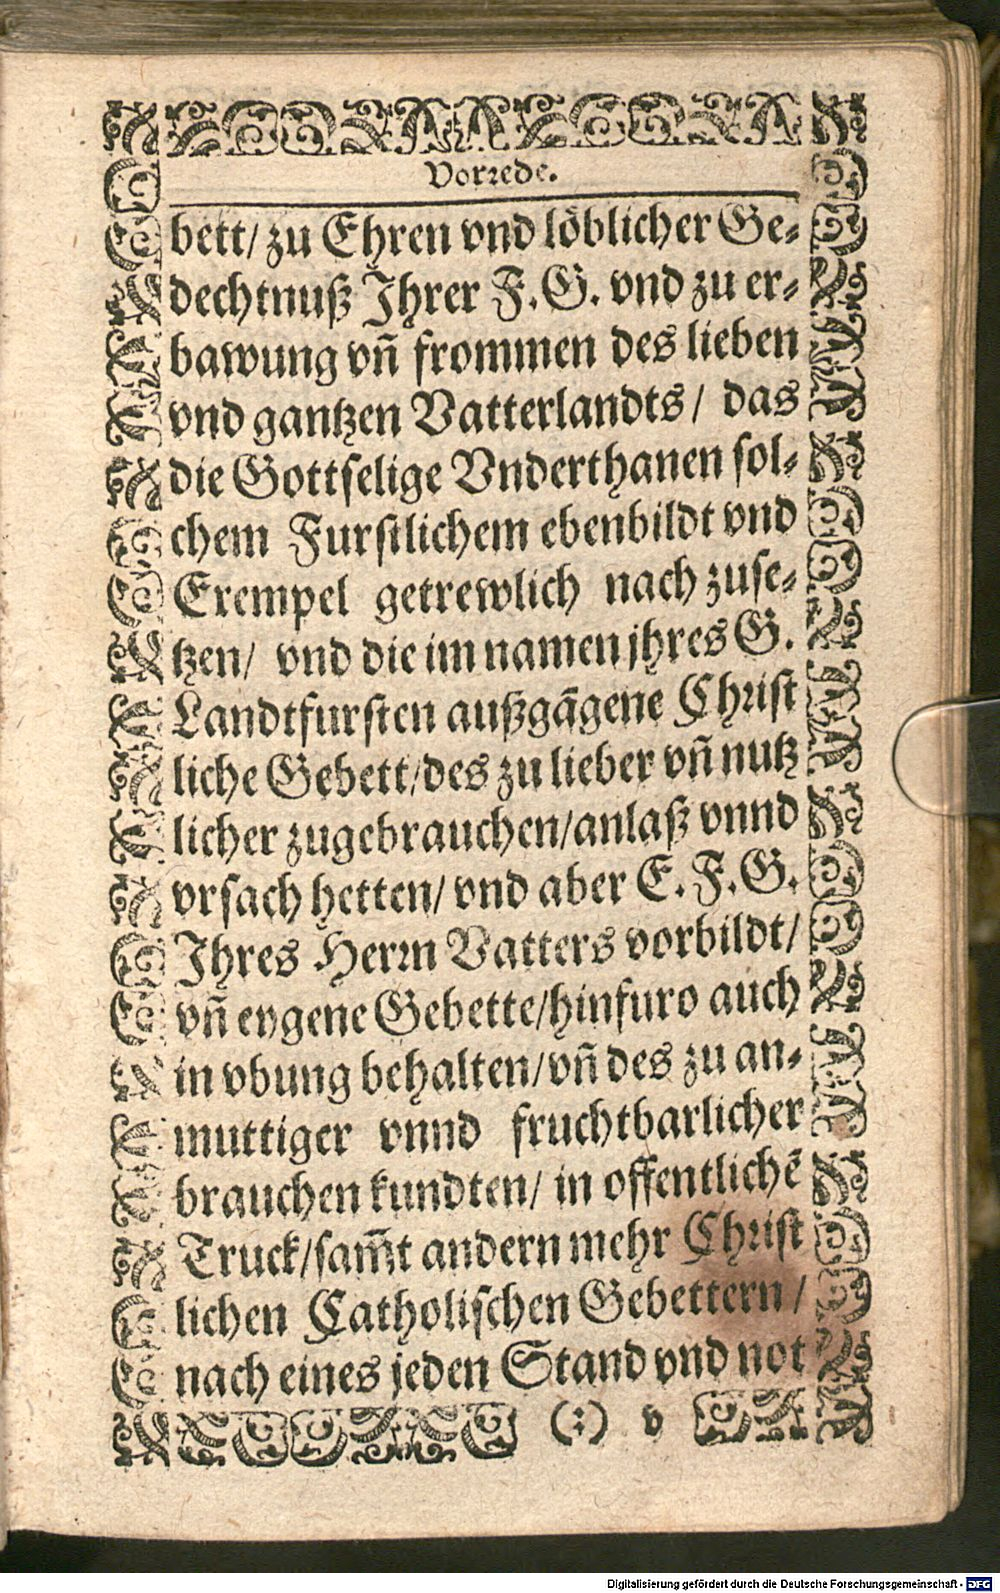 Vorrede.
bett/ zu Ehren vnd löblicher Ge-
dechtnuß Ihrer F.G. vnd zu er-
bawung vñ frommen des lieben
vnd gantzen Vatterlandts/ das
die Gottselige Vnderthanen sol-
chem Furstlichem ebenbildt vnd
Exempel getrewlich nach zuse-
tzen/ vnd die im namen jhres G.
Landtfursten außgāgene Christ
liche Gebett/des zu lieber vñ nutz
licher zugebrauchen/anlaß vnnd
vrsach hetten/ vnd aber E. F.G.
Ihres Herrn Vatters vorbildt/
vñ eygene Gebette/hinfuro auch
in vbung behalten/vñ des zu an-
muttiger vnnd fruchtbarlicher
brauchen kundten/ in offentlichē
Truck/sam̃t andern mehr Christ
lichen Catholischen Gebettern /
nach eines jeden Stand vnd not
(:) v
Digitalisierung gefördert durch die Deutsche Forschungsgemeinschaft - DFG